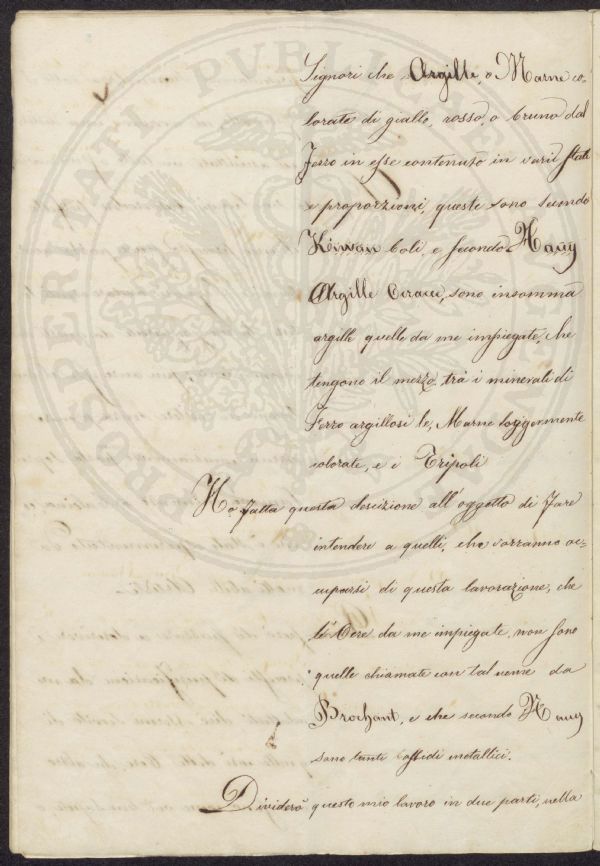 Signori che Argille, o Marne co-
lorate di giallo, rosso, o bruno dal
Ferro in esse contenuto in varii stati
e proporzioni, queste sono secondo
Kirwan Boli, e secondo Haüy
Argille Ocracee, sono insomma
argille quelle da me impiegate, che
tengono il mezzo trà i minerali di
Ferro argillosi le, Marne leggermente
colorate, e i Tripoli
Ho fatta questa descizione all'oggetto di fare
intendere a quelli, che vorranno oc-
cuparsi di questa lavorazione, che
le Ocre da me impiegate, non sono
quelle chiamate con tal nome da
Brochant, e che secondo Haüy
sono tanti Ossidi metallici.
Dividerò questo mio lavoro in due parti, nella
PROSPERITATI PUBLICAE